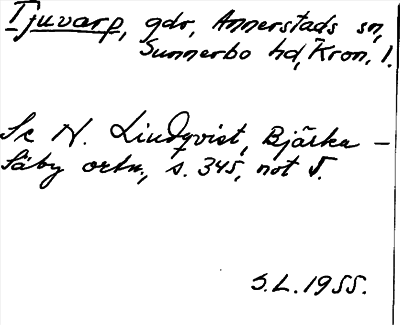 Tjuvarp, gdr, Annerstads sn,
Sunnerbo hd, Kron. l.
Se N. Lindqvist, Bjärka-
Säby ortn., s. 345, not 5.
S.L. 1955.